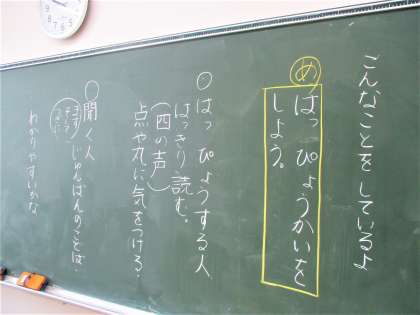 こんなことをしているよ
め はっぴょうかいを
しよう。
○はっぴょうする人
はっきり読む。
(四の声)
点や丸に気をつける。
○聞く人
まず
そして
じゅんばんのことば、
わかりやすいかな